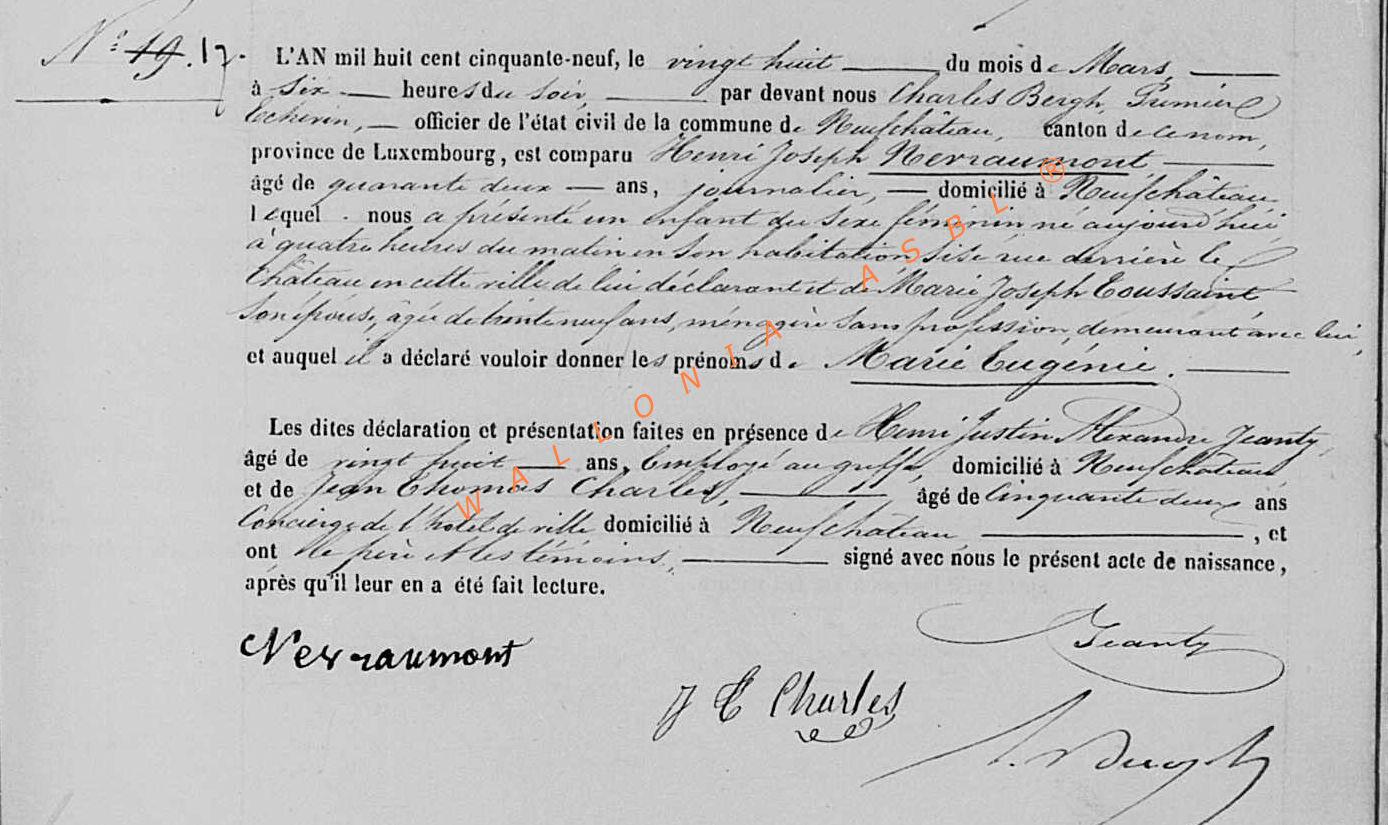 N° 19. 17.
L'AN mil huit cent cinquante-neuf, le vingt huit du mois de Mars,
à six heures du soir, par devant nous Charles Bergh, Premier
Echevin, officier de l'état civil de la commune de Neufchâteau, canton de ce nom,
province de Luxembourg, est comparu Henri Joseph Nerraumont,
âgé de quarante deux ans, journalier, domicilié à Neufchâteau
lequel nous a présenté un enfant du sexe féminin né aujourd'hui
à quatre heures du matin en son habitation sise rue derrière le
Château en cette ville de lui déclarant et de Marie Joseph Toussaint
son épouse, âgée de trente neuf ans, ménagère sans profession, demeurant avec lui,
et auquel il a déclaré vouloir donner les prénoms de Marie Eugénie.
Les dites déclaration et présentation faites en présence de Henri Justin Alexandre Jeanty,
âgé de vingt huit ans, Employé au greffe, domicilié à Neufchâteau
et de Jean Thomas Charles, âgé de Cinquante deux ans
Concierge de l'hotel de ville domicilié à Neufchâteau, et
ont le père et les témoins, signé avec nous le présent acte de naissance,
après qu'il leur en a été fait lecture.
Nerraumont
Jeanty
J T Charles
WALLONIA ASBL ®